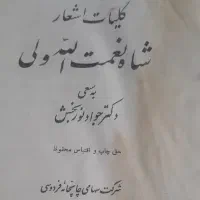 کلیات اشعار
شاه نعمت الله ولی
به سعی
دکتر جواد نوربخش
حق چاپ و اقتباس محفوظ
شرکت سهامی چاپخانه فردوسی